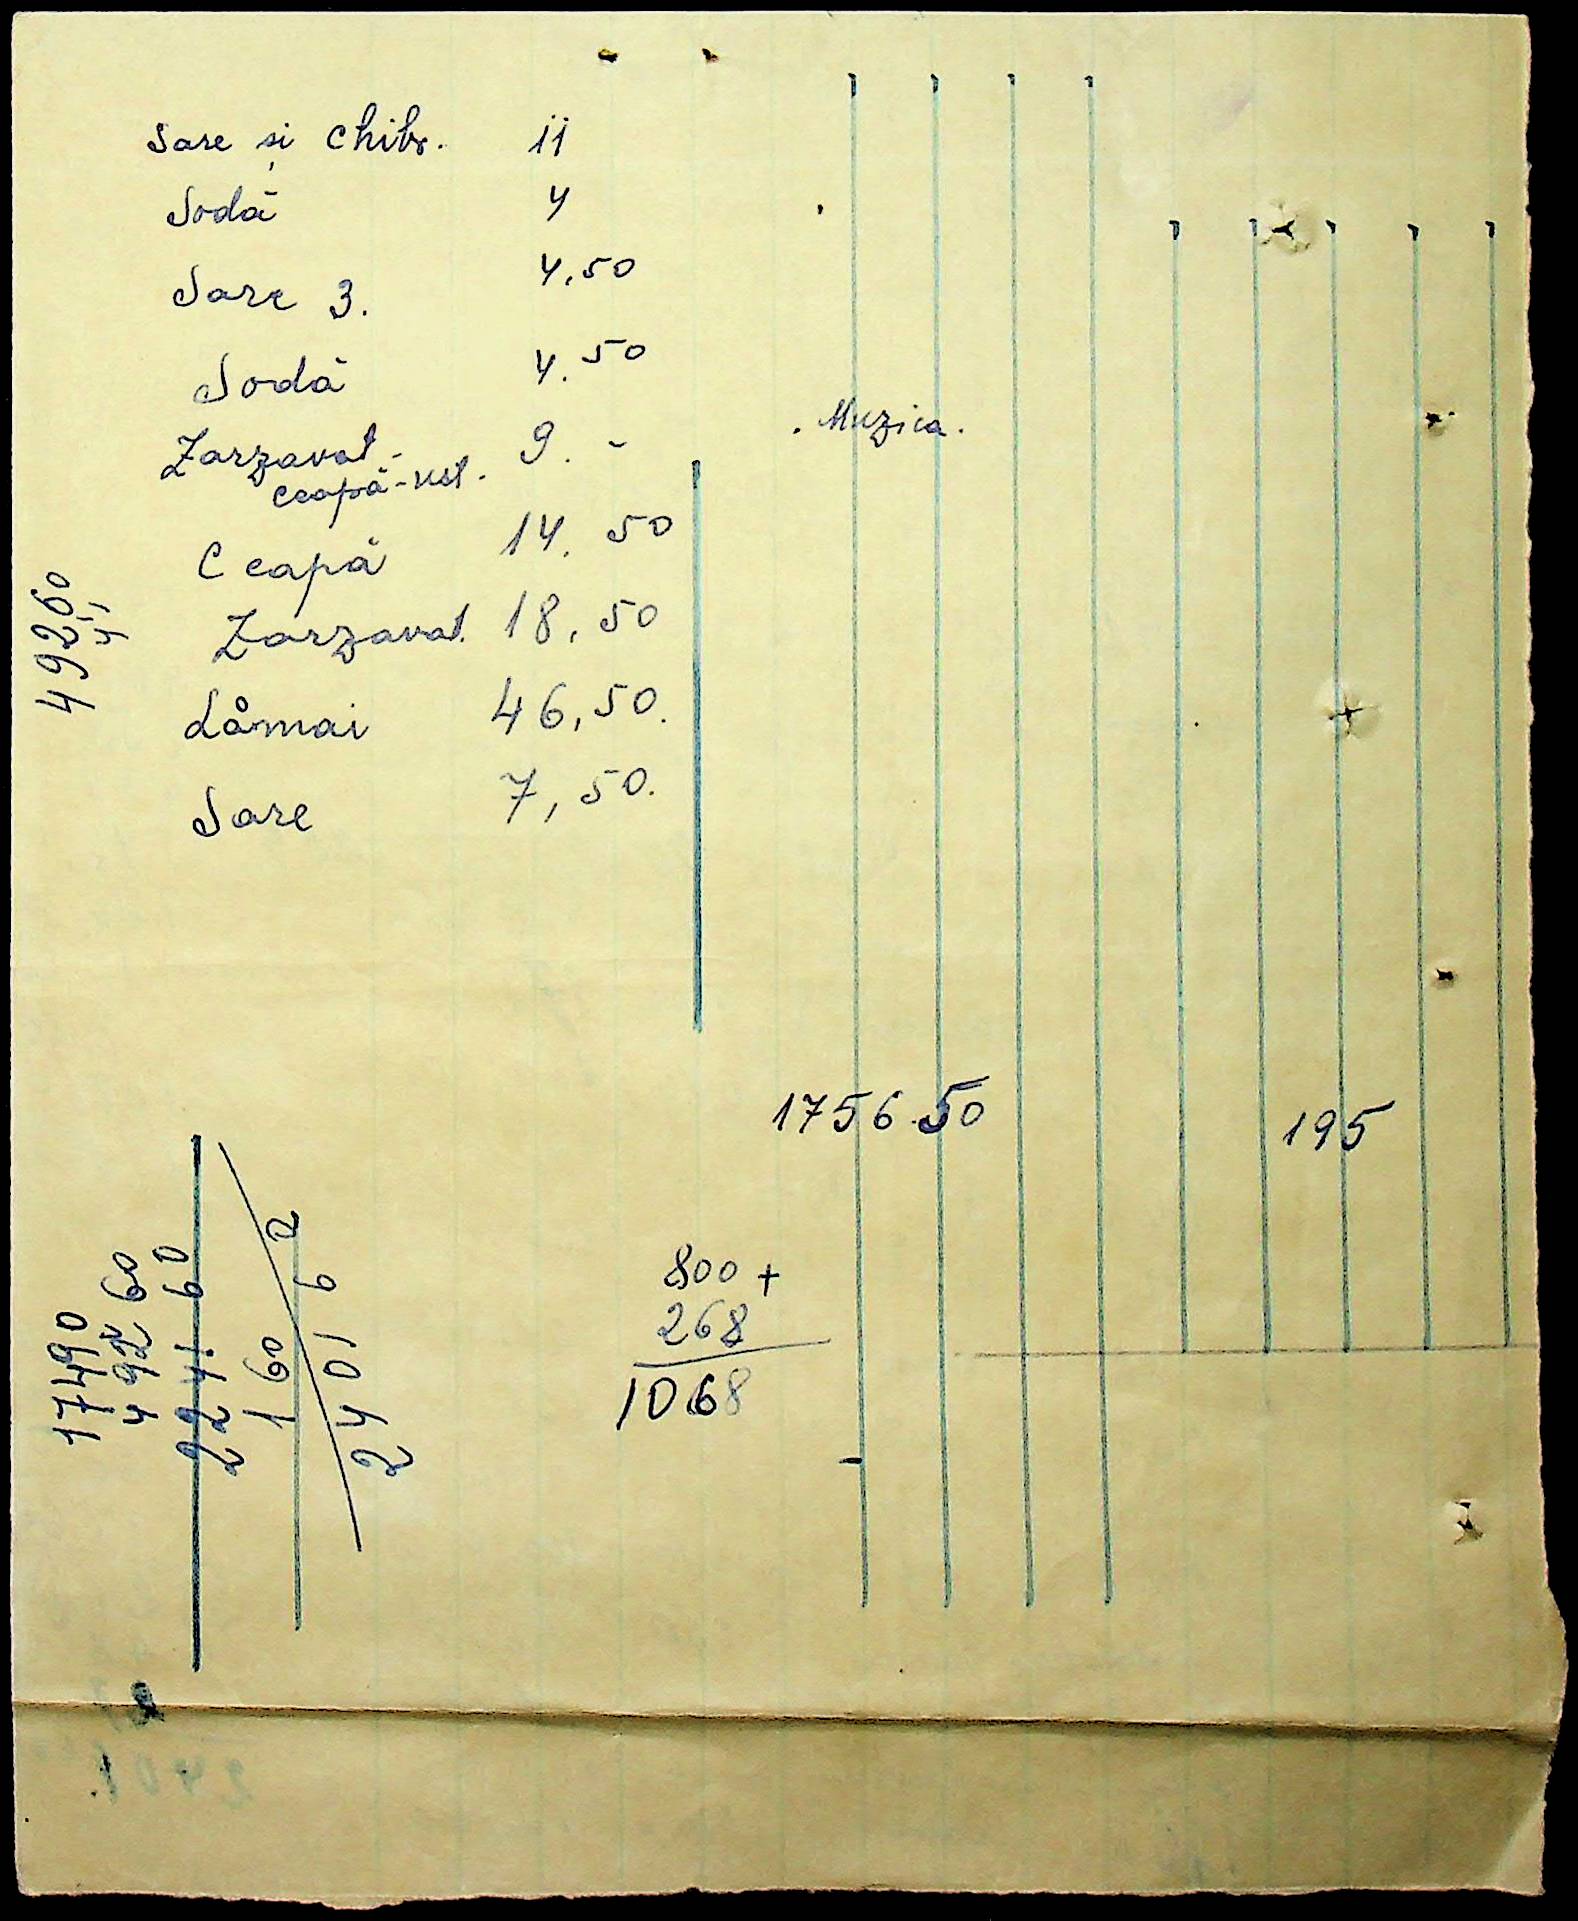 Sare și chibr. 11
Sodă 4
Sare 3. 4,50
Sodă 4.50
Zarzavat - 9. -
ceapă-ust.
Ceapă 14.50
Zarzavat. 18,50
Lămâi 46,50.
Sare 7,50.
. Muzica.
49260
1756.50
195
800 +
268
1068
17490
492 60
2241 60
1 60
2401 6